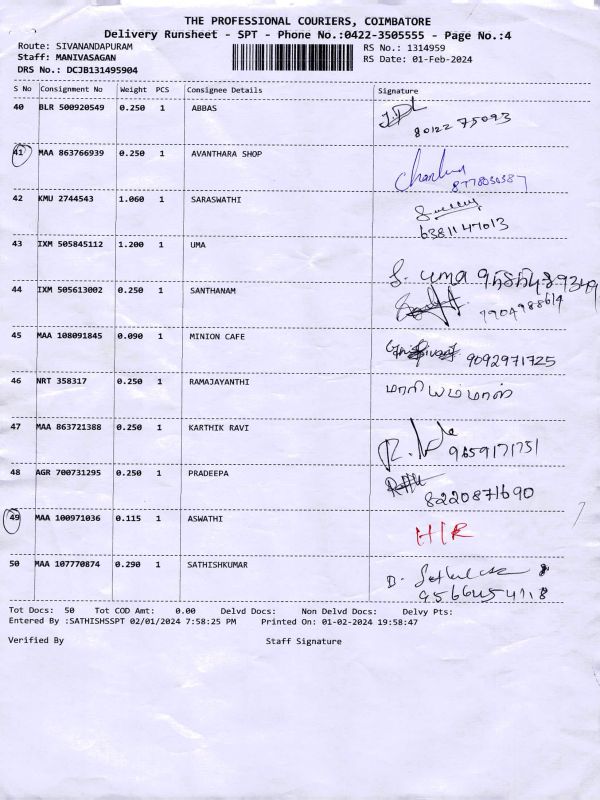 THE PROFESSIONAL COURIERS, COIMBATORE
Delivery Runsheet - SPT - Phone No.:0422-3505555 - Page No.:4
Route: SIVANANDAPURAM RS No.: 1314959
Staff: MANIVASAGAN RS Date: 01-Feb-2024
DRS No.: DCJB131495904
S No Consignment No Weight PCS Consignee Details Signature
40 BLR 500920549 0.250 1 ABBAS
80122 75093
41 MAA 863766939 0.250 1 AVANTHARA SHOP
42 KMU 2744543 1.060 1 SARASWATHI
6381147013
43 IXM 505845112 1.200 1 UMA
S. uma
44 IXM 505613002 0.250 1 SANTHANAM
7904988614
45 MAA 108091845 0.090 1 MINION CAFE
9092971725
46 NRT 358317 0.250 1 RAMAJAYANTHI
மாரியம்மாள்
47 MAA 863721388 0.250 1 KARTHIK RAVI
9659171751
48 AGR 700731295 0.250 1 PRADEEPA
8220871690
49 MAA 100971036 0.115 1 ASWATHI
H/R
50 MAA 107770874 0.290 1 SATHISHKUMAR
Tot Docs: 50 Tot COD Amt: 0.00 Delvd Docs: Non Delvd Docs: Delvy Pts:
Entered By :SATHISHSSPT 02/01/2024 7:58:25 PM Printed On: 01-02-2024 19:58:47
Verified By Staff Signature